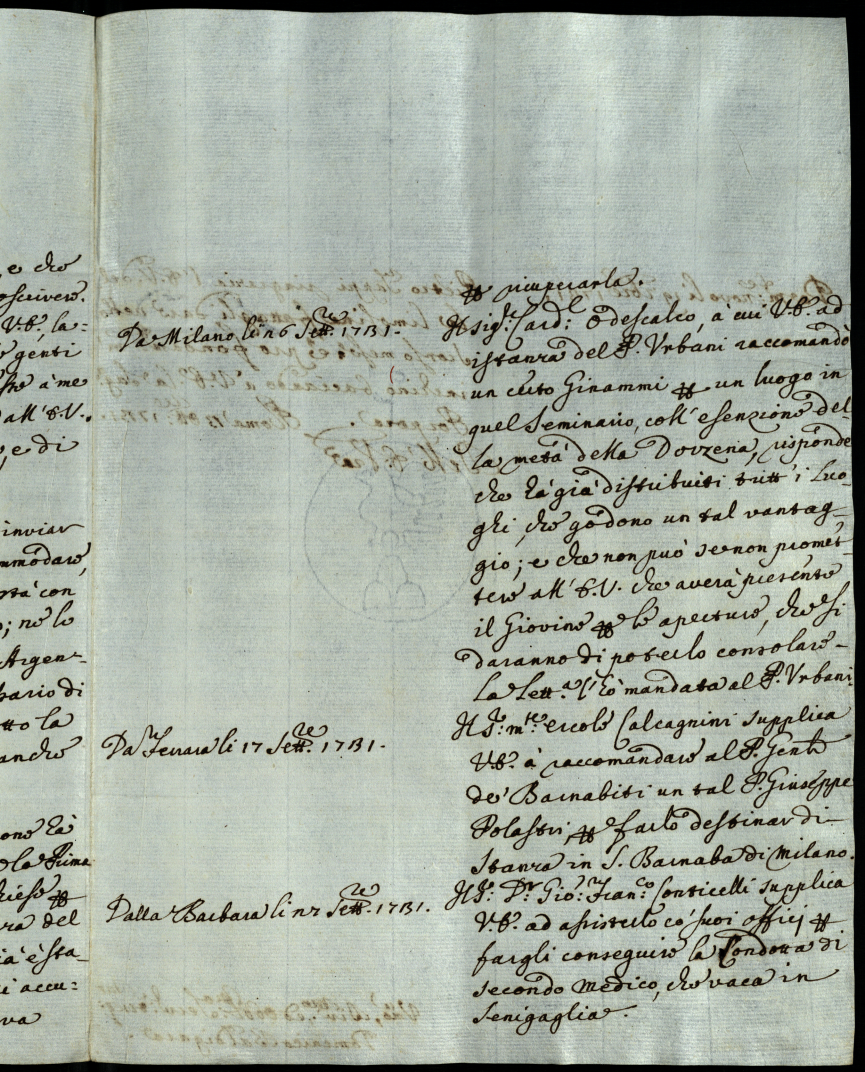 e che
scrivere.
V.E., la-
genti
à me
all' E.V.
, e di
inviar
mmodare,
con
; nè lo
Argen-
sario di
tto la
anche
one hà
la Prima
ra del
ià è sta-
i accu-
va
ricuperarla.
Da Milano li 26 Settre. 1731.
Il Sigr. Cardl. Odescalco, a cui V.E. ad
istanza del P. Urbani raccomandò
un certo Ginammi per un luogo in
quel Seminario, coll' esenzione del-
la metà della Dozzena, risponde
che hà già distribuiti tutt' i Luo-
ghi, che godono un tal vantag-
gio; e che non può se non promet-
tere all' E.V. che averà presente
il Giovine per le aperture, che si
daranno di poterlo consolare.
La Letta. l' hò mandata al P. Urbani.
Da Ferrara li 17 Settre. 1731.
Il Sr. mse. Ercole Calcagnini supplica
V.E. à raccomandare al P. Genle
de' Barnabiti un tal P. Giuseppe
Polastri, per farlo destinar di
stanza in S. Barnaba di Milano.
Dalla Barbara li 27 Settre. 1731.
Il Sr. Dr. Gio: Franco. Conticelli supplica
V.E. ad assisterlo co' suoi officij per
fargli conseguire la Condotta di
secondo Medico, che vaca in
Senigaglia.